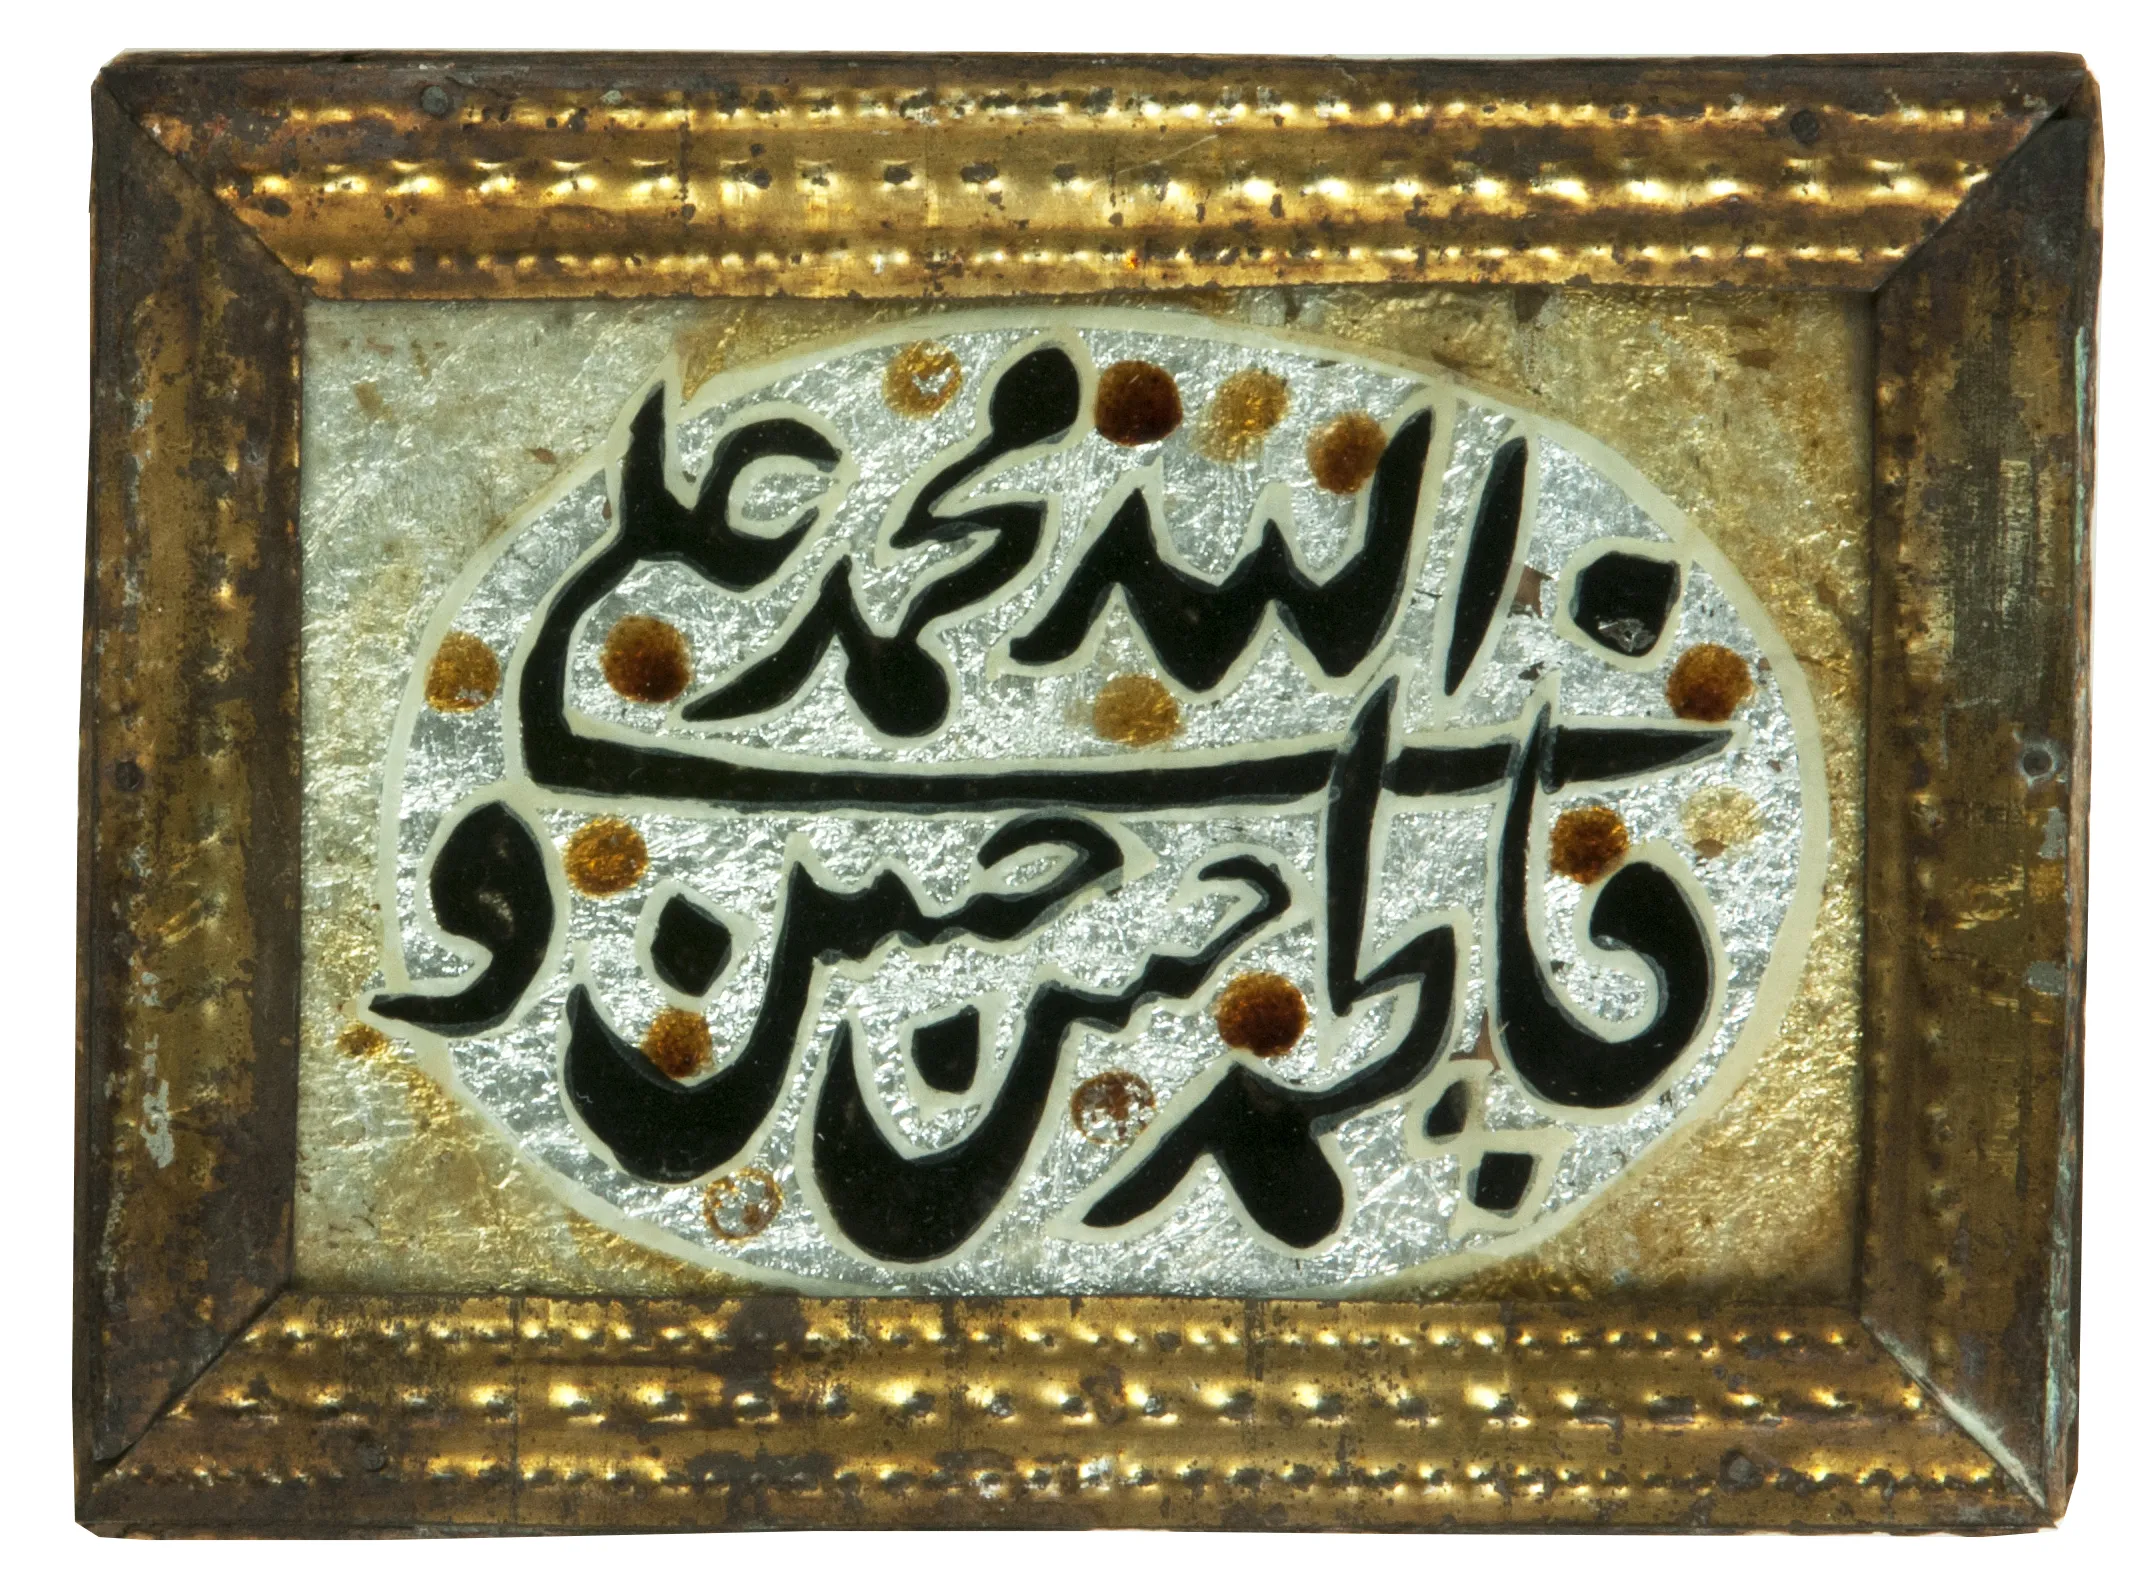 الله محمد علے
فاطمه حسن حسین و